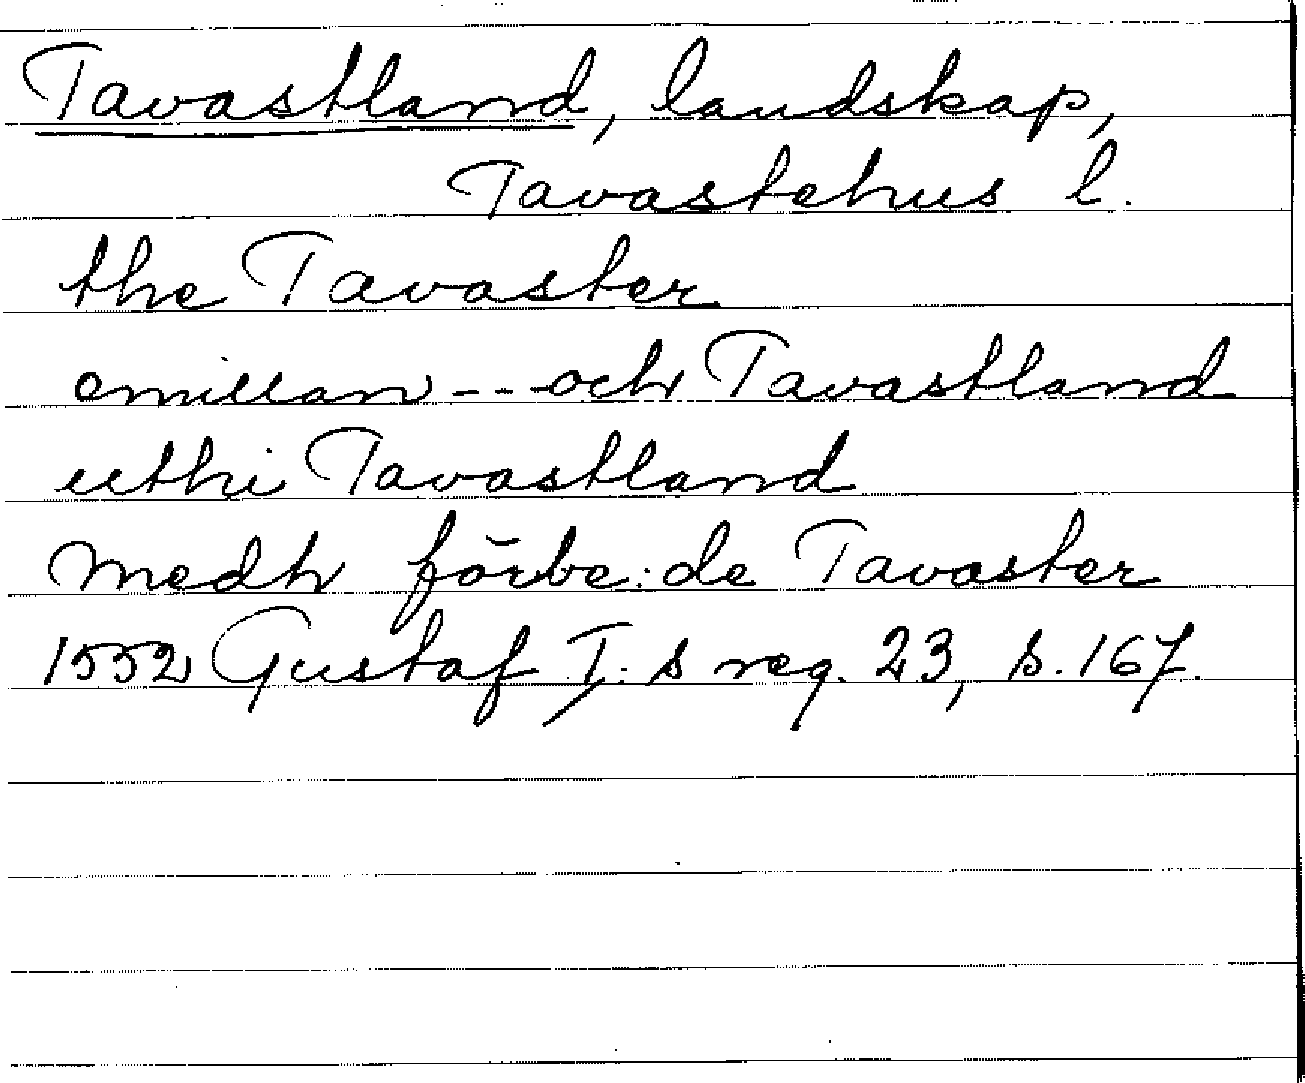 Tavastland, landskap,
Tavastehus l.
the Tavaster
emillan --- och Tavastland
uthi Tavastland
medh förbe:de Tavaster
1552 Gustaf I:s reg. 23, s. 167.